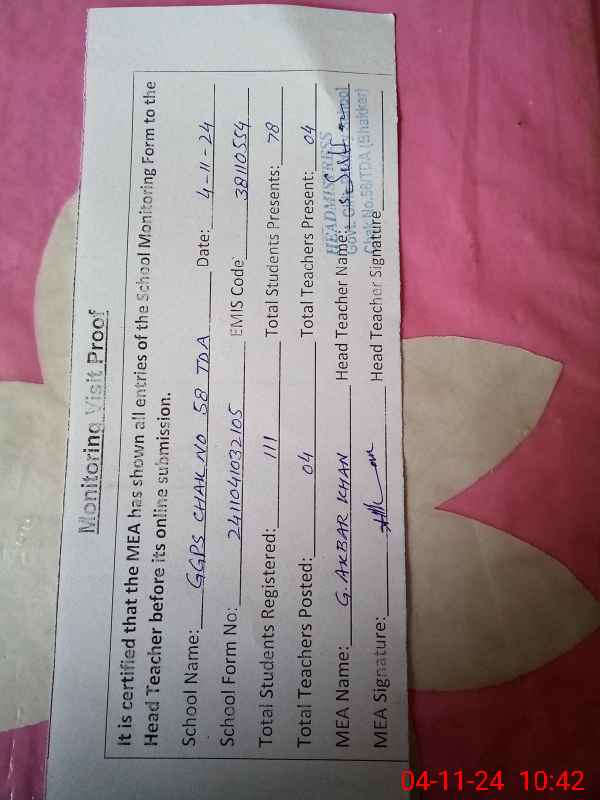 Monitoring Visit Proof
It is certified that the MEA has shown all entries of the School Monitoring Form to the
Head Teacher before its online submission.
School Name: GGPS CHAK NO 58 TDA Date: 4-11-24
School Form No: 2411041032105 EMIS Code 38110554
Total Students Registered: 111 Total Students Presents: 78
Total Teachers Posted: 04 Total Teachers Present: 04
MEA Name: G. AKBAR KHAN Head Teacher Name:
MEA Signature: Head Teacher Signature
HEADMISTRESS
Govt. School
Chak No.58/TDA (Bhakkar)
04-11-24 10:42